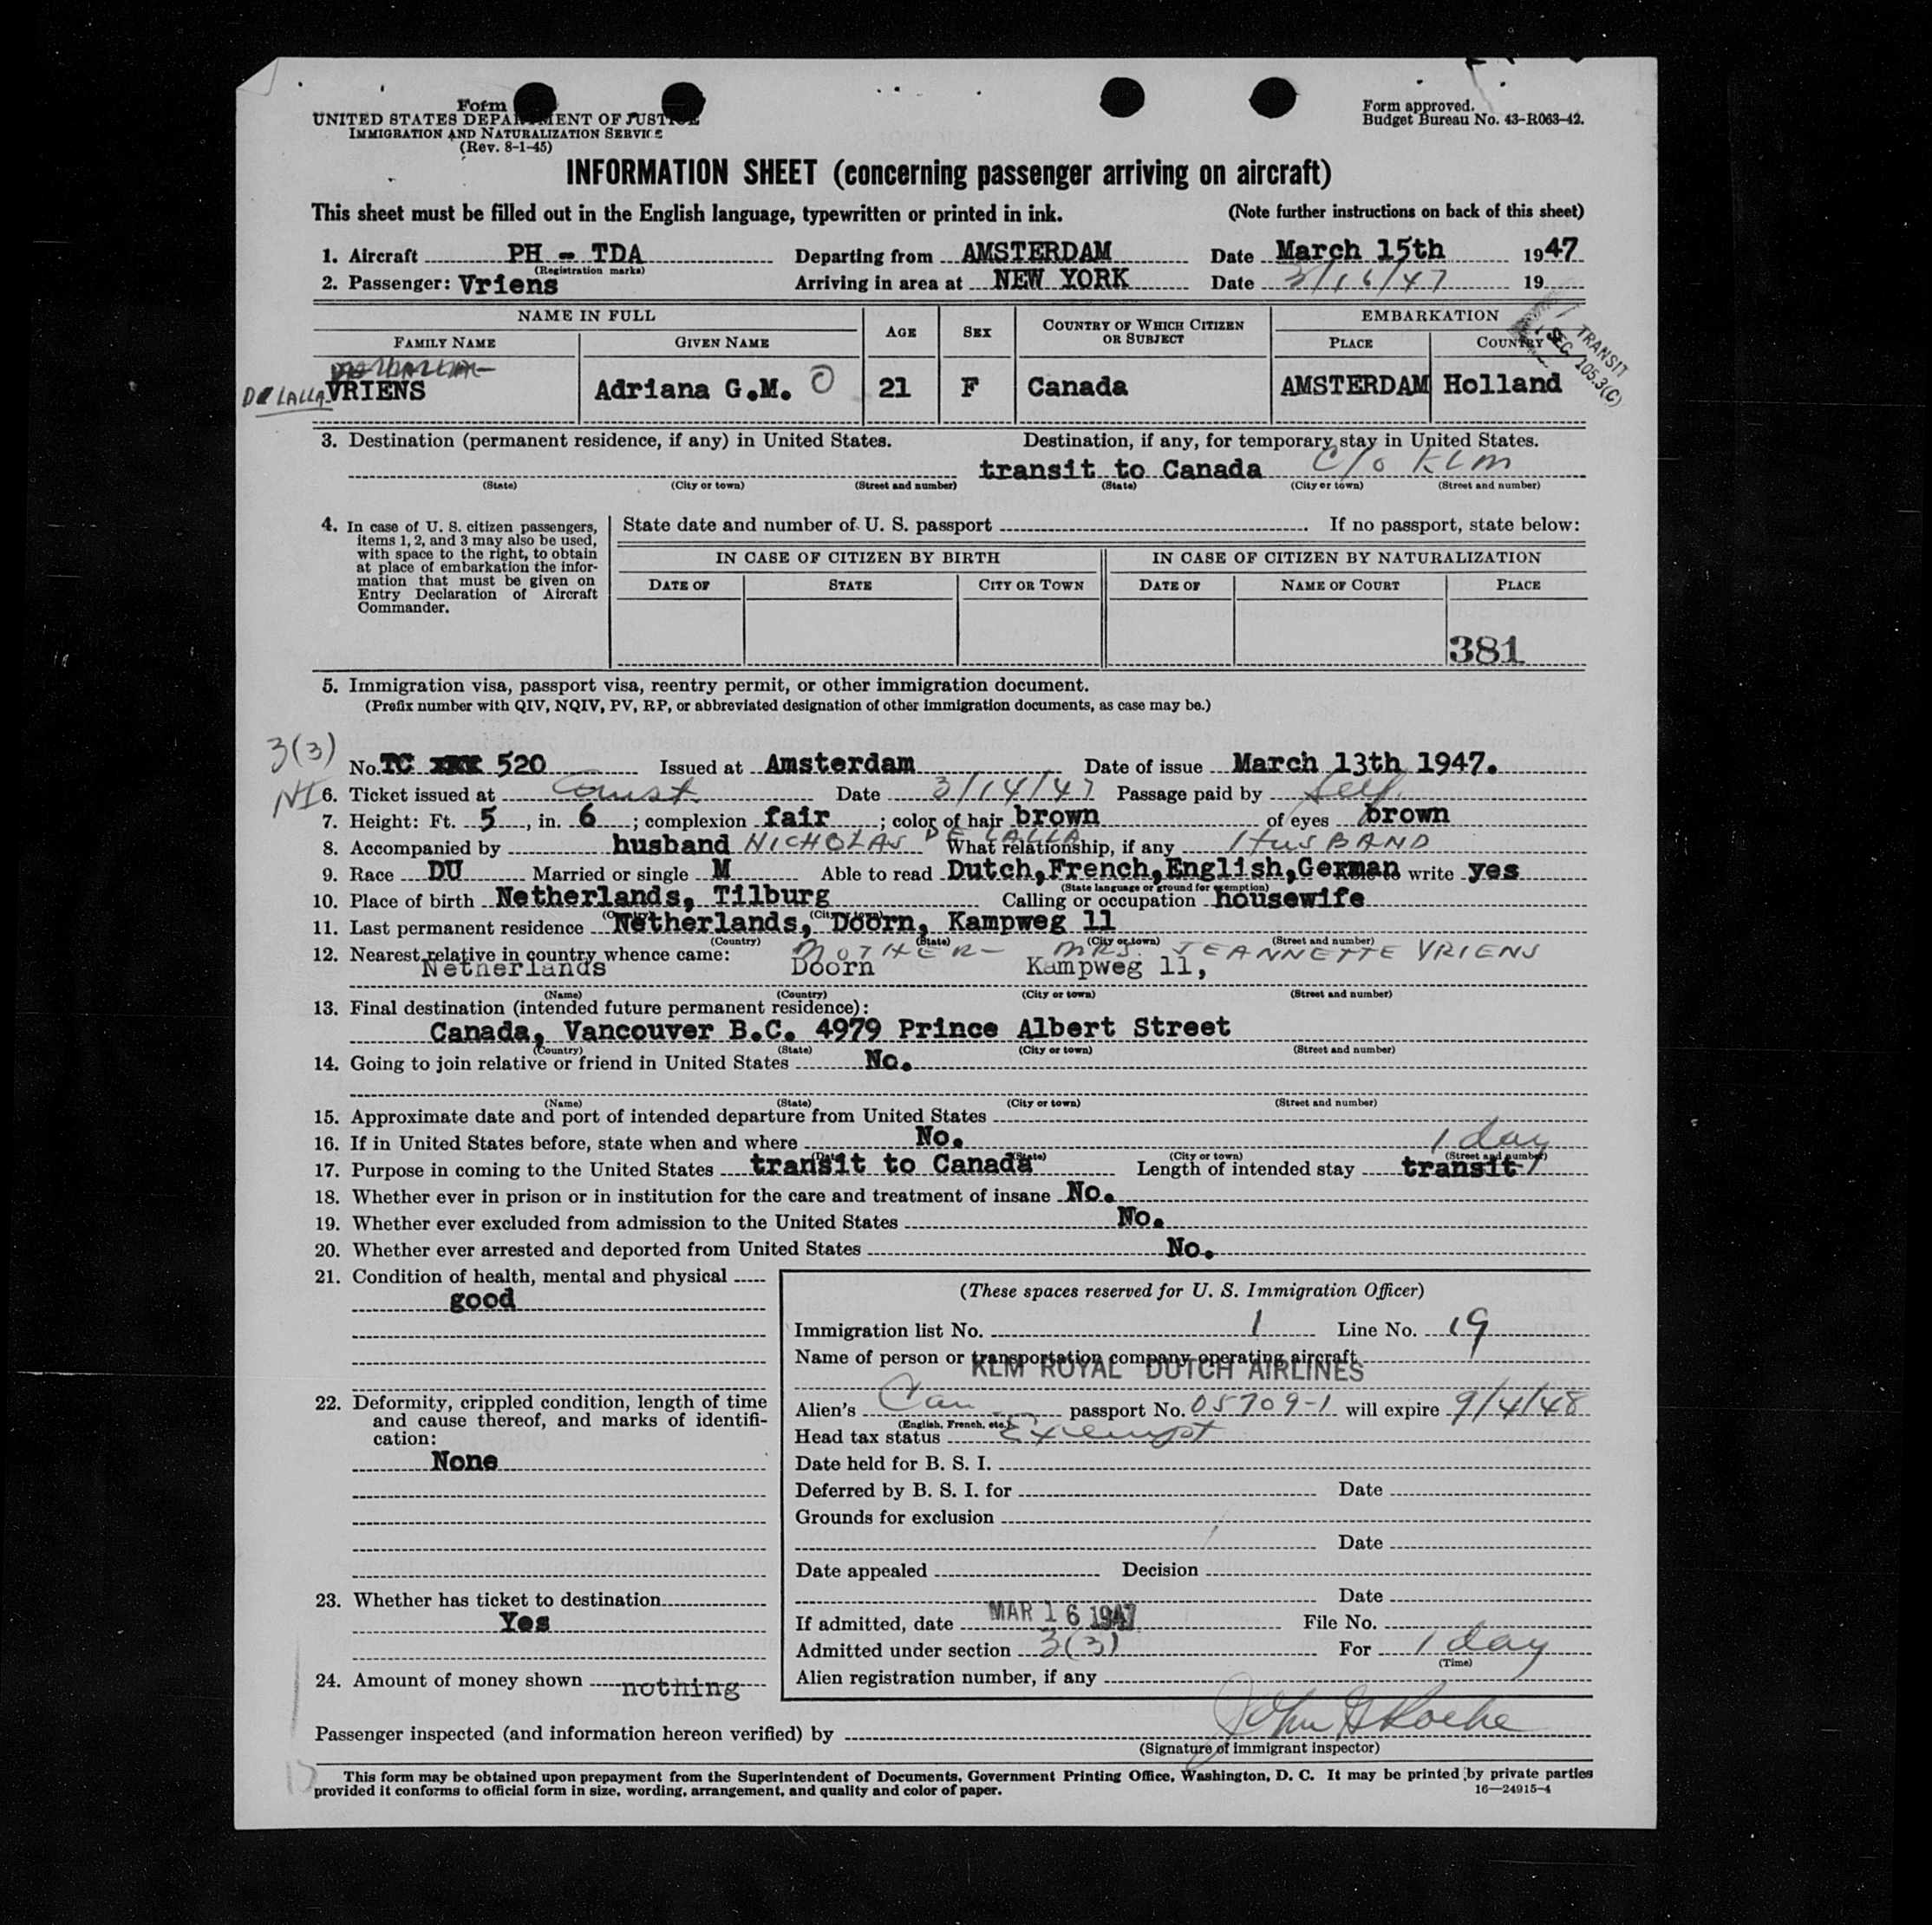 Form
UNITED STATES DEPARTMENT OF JUSTICE
IMMIGRATION AND NATURALIZATION SERVICE
(Rev. 8-1-45)
Form approved.
Budget Bureau No. 43-R063-42.
INFORMATION SHEET (concerning passenger arriving on aircraft)
This sheet must be filled out in the English language, typewritten or printed in ink. (Note further instructions on back of this sheet)
1. Aircraft PH - TDA Departing from AMSTERDAM Date March 15th 1947
(Registration marks)
2. Passenger: Vriens Arriving in area at NEW YORK Date 3/16/47 19
NAME IN FULL AGE SEX COUNTRY OF WHICH CITIZEN OR SUBJECT EMBARKATION
FAMILY NAME GIVEN NAME PLACE COUNTRY
TRANSIT
SEC. 105.3(C)
DE LALLA VRIENS Adriana G.M. O 21 F Canada AMSTERDAM Holland
3. Destination (permanent residence, if any) in United States. Destination, if any, for temporary stay in United States.
transit to Canada C/o KLM
(State) (City or town) (Street and number) (State) (City or town) (Street and number)
4. In case of U. S. citizen passengers,
items 1, 2, and 3 may also be used,
with space to the right, to obtain
at place of embarkation the infor-
mation that must be given on
Entry Declaration of Aircraft
Commander.
State date and number of U. S. passport . If no passport, state below:
IN CASE OF CITIZEN BY BIRTH IN CASE OF CITIZEN BY NATURALIZATION
DATE OF STATE CITY OR TOWN DATE OF NAME OF COURT PLACE
381
5. Immigration visa, passport visa, reentry permit, or other immigration document.
(Prefix number with QIV, NQIV, PV, RP, or abbreviated designation of other immigration documents, as case may be.)
3(3)
No. TC xxx 520 Issued at Amsterdam Date of issue March 13th 1947.
NI 6. Ticket issued at Amst. Date 3/14/47 Passage paid by Self.
7. Height: Ft. 5, in. 6; complexion fair; color of hair brown of eyes brown
8. Accompanied by husband NICHOLAS DE LALLA What relationship, if any HUSBAND
9. Race DU Married or single M Able to read Dutch,French,English,German write yes
(State language or ground for exemption)
10. Place of birth Netherlands, Tilburg Calling or occupation housewife
11. Last permanent residence Netherlands, Doorn, Kampweg 11
(Country) (State) (City or town) (Street and number)
12. Nearest relative in country whence came: MOTHER - MRS. JEANNETTE VRIENS
Netherlands Doorn Kampweg 11,
(Name) (Country) (City or town) (Street and number)
13. Final destination (intended future permanent residence):
Canada, Vancouver B.C. 4979 Prince Albert Street
(Country) (State) (City or town) (Street and number)
14. Going to join relative or friend in United States No.
(Name) (State) (City or town) (Street and number)
15. Approximate date and port of intended departure from United States
16. If in United States before, state when and where No. 1 day
(Date) (State) (City or town) (Street and number)
17. Purpose in coming to the United States transit to Canada Length of intended stay transit
18. Whether ever in prison or in institution for the care and treatment of insane No.
19. Whether ever excluded from admission to the United States No.
20. Whether ever arrested and deported from United States No.
21. Condition of health, mental and physical
good
22. Deformity, crippled condition, length of time
and cause thereof, and marks of identifi-
cation:
None
23. Whether has ticket to destination
Yes
24. Amount of money shown nothing
(These spaces reserved for U. S. Immigration Officer)
Immigration list No. 1 Line No. 19
Name of person or transportation company operating aircraft
KLM ROYAL DUTCH AIRLINES
Alien's Can passport No. 05709-1 will expire 9/4/48
(English, French, etc.)
Head tax status Exempt
Date held for B. S. I.
Deferred by B. S. I. for Date
Grounds for exclusion
Date
Date appealed Decision
Date
If admitted, date MAR 16 1947 File No.
Admitted under section 3(3) For 1 day
(Time)
Alien registration number, if any
Passenger inspected (and information hereon verified) by John G Roche
(Signature of immigrant inspector)
This form may be obtained upon prepayment from the Superintendent of Documents, Government Printing Office, Washington, D. C. It may be printed by private parties
provided it conforms to official form in size, wording, arrangement, and quality and color of paper. 16—24915-4